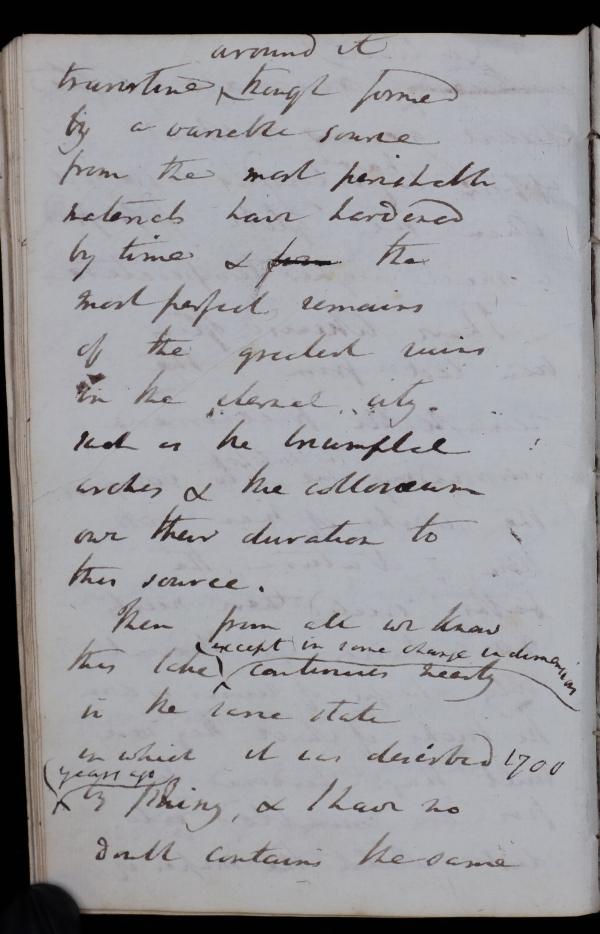 around it
travertine though formed
by a variable source
from the most perishable
materials have hardened
by time & from the
most perfect remains
of the greatest ruins
in the eternal city.
such as the triumphal
arches & the colloseum
owe their duration to
this source.
Then from all we know
except in some change in dimension
this lake continues nearly
in the same state
in which it was described 1700
years ago
by Pliny, & I have no
doubt contains the same